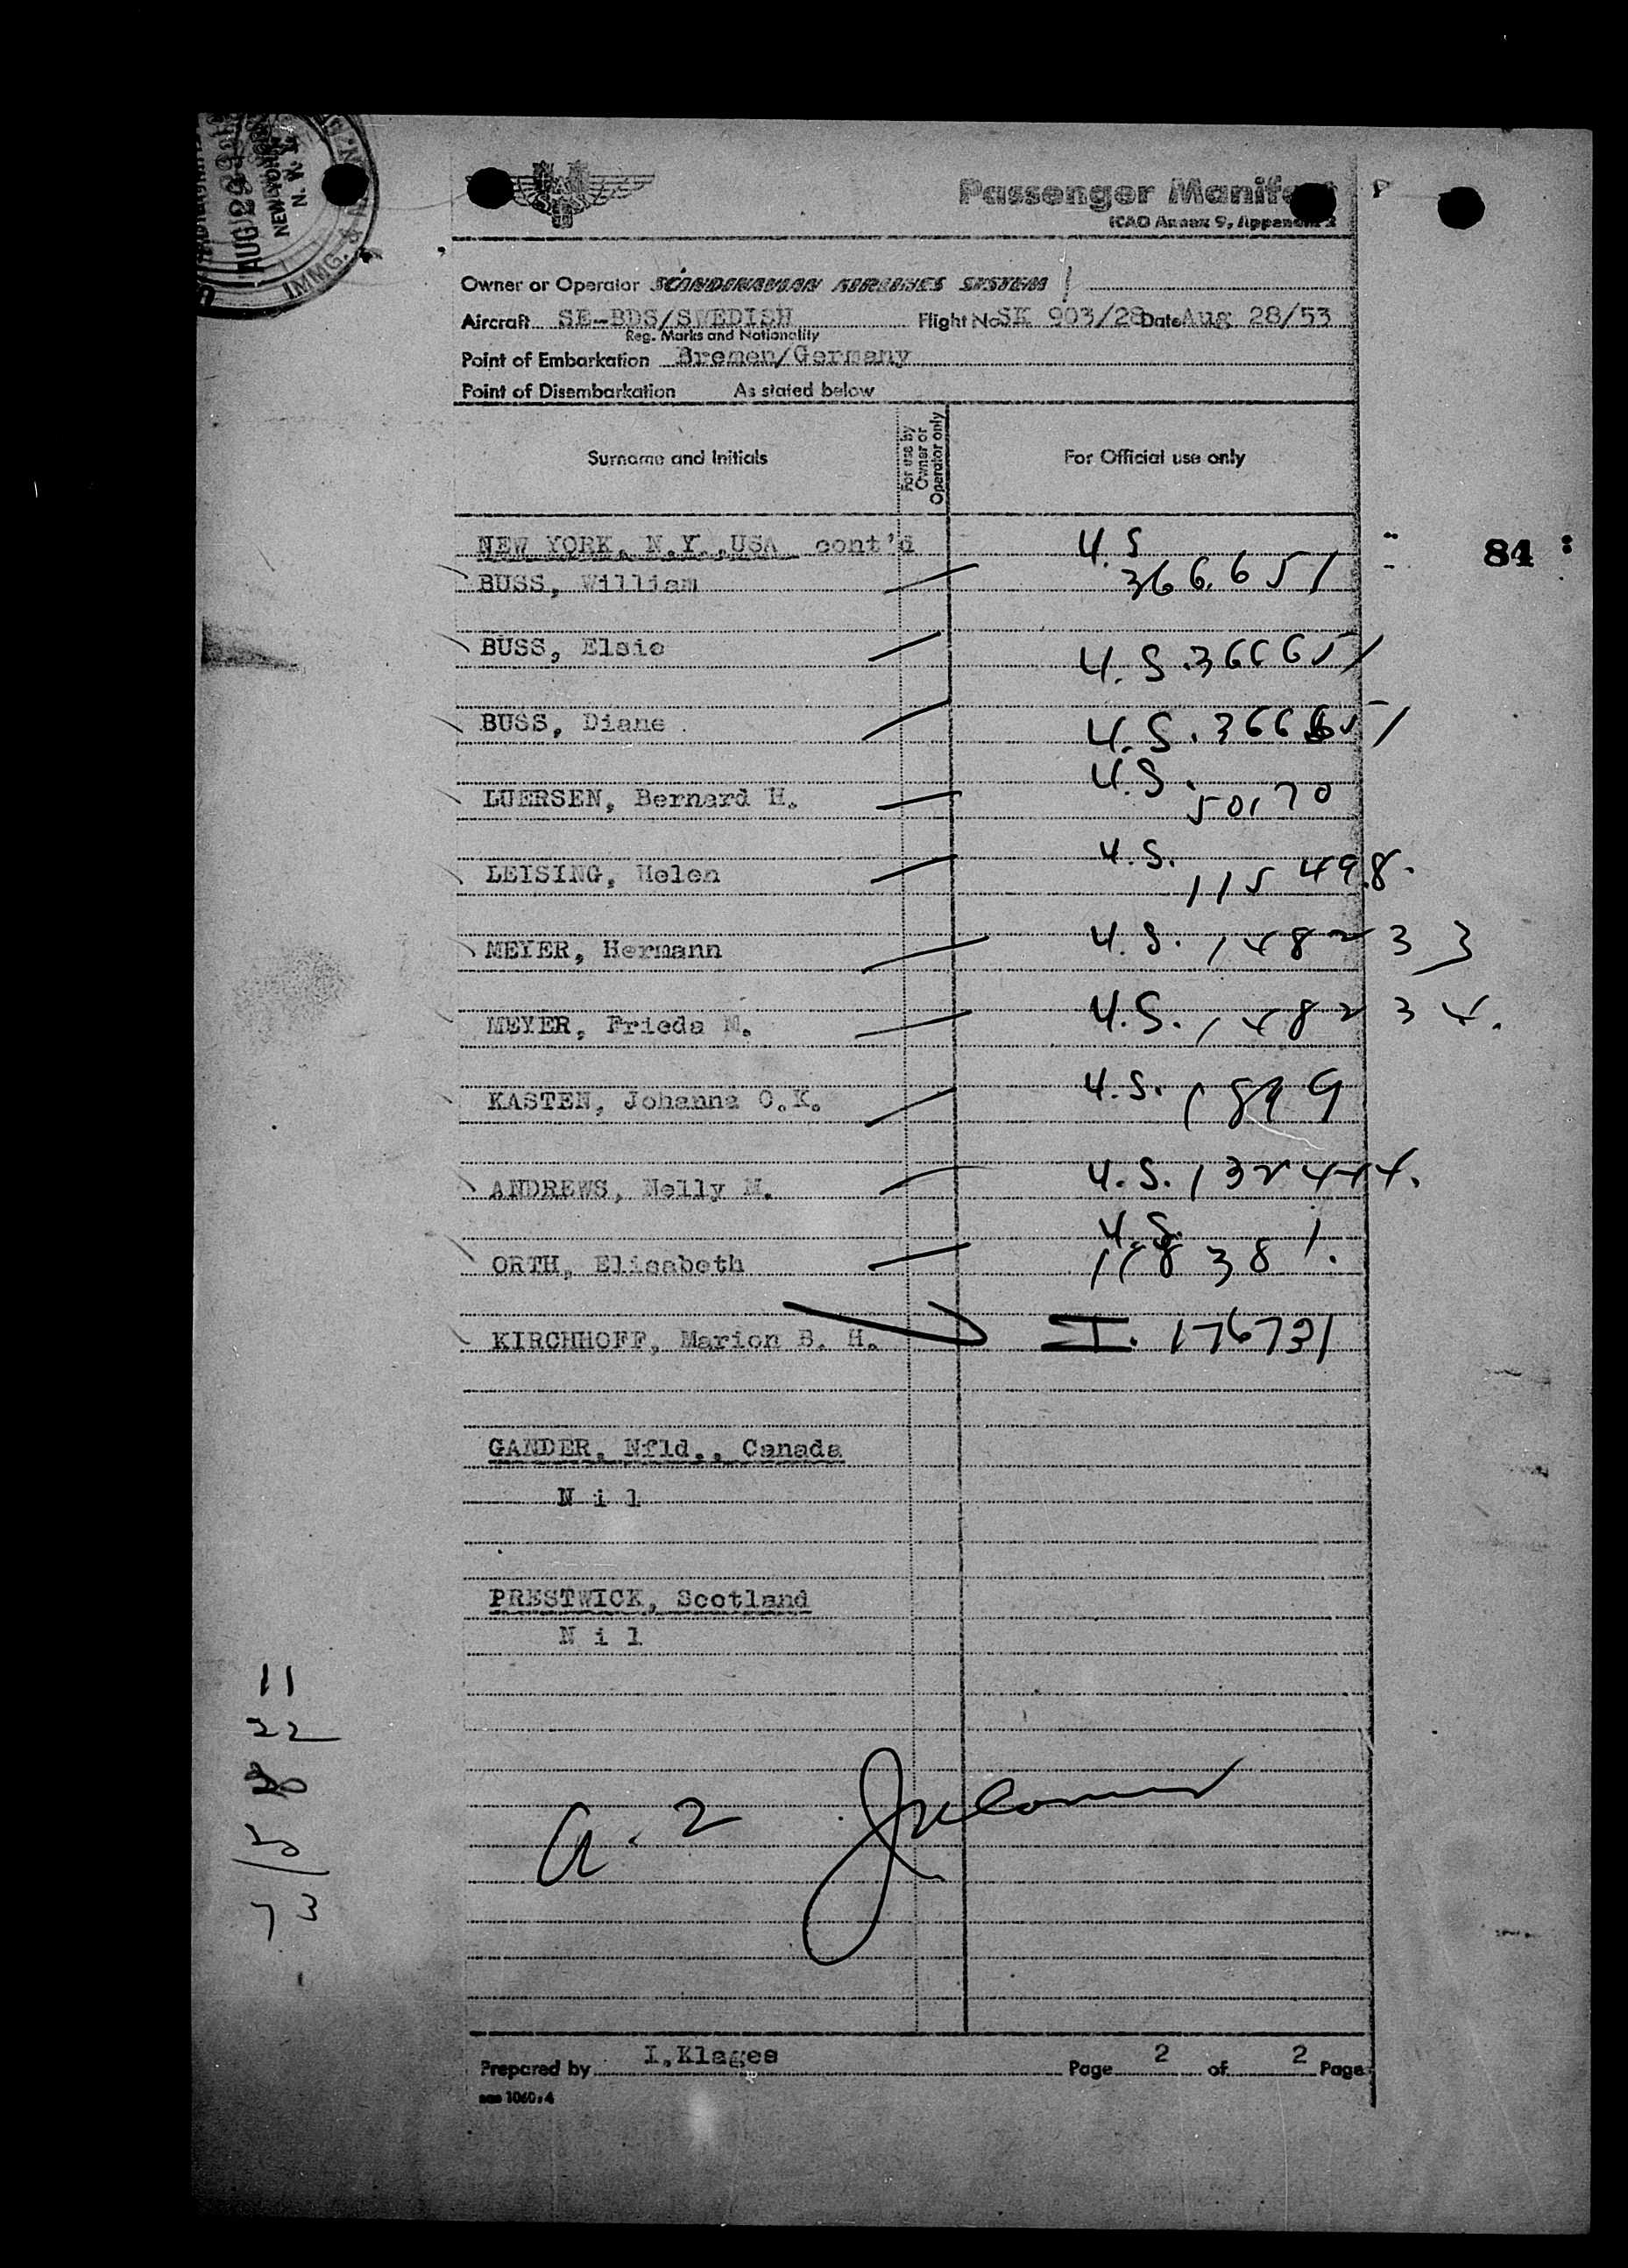 AUG 29
NEW YORK
N. Y.
IMMG. & N
SAS
Passenger Manife
ICAO Annex 9, Appendix 2
Owner or Operator SCANDINAVIAN AIRLINES SYSTEM
Aircraft SE-BDS/SWEDISH Flight No SK 903/28 Date Aug 28/53
Reg. Marks and Nationality
Point of Embarkation Bremen/Germany
Point of Disembarkation As stated below
Surname and Initials For use by Owner or Operator only For Official use only
NEW YORK, N.Y.,USA cont'd U.S
84
BUSS, William 366651
BUSS, Elsie U.S.366651
BUSS, Diane U.S.366651
U.S.
LUERSEN, Bernard H. 50170
U.S.
LEISING, Helen 115498.
MEYER, Hermann U.S. 148233
MEYER, Frieda M. U.S. 148234.
KASTEN, Johanna O.K. U.S. 1899
ANDREWS, Nelly M. U.S. 132444.
U.S.
ORTH, Elisabeth 118381.
KIRCHHOFF, Marion B. H. I. 176731
GANDER, Nfld., Canada
N i l
PRESTWICK, Scotland
N i l
11
22
20
a. 2
73
Prepared by I.Klages Page 2 of 2 Page
sas 1060:4